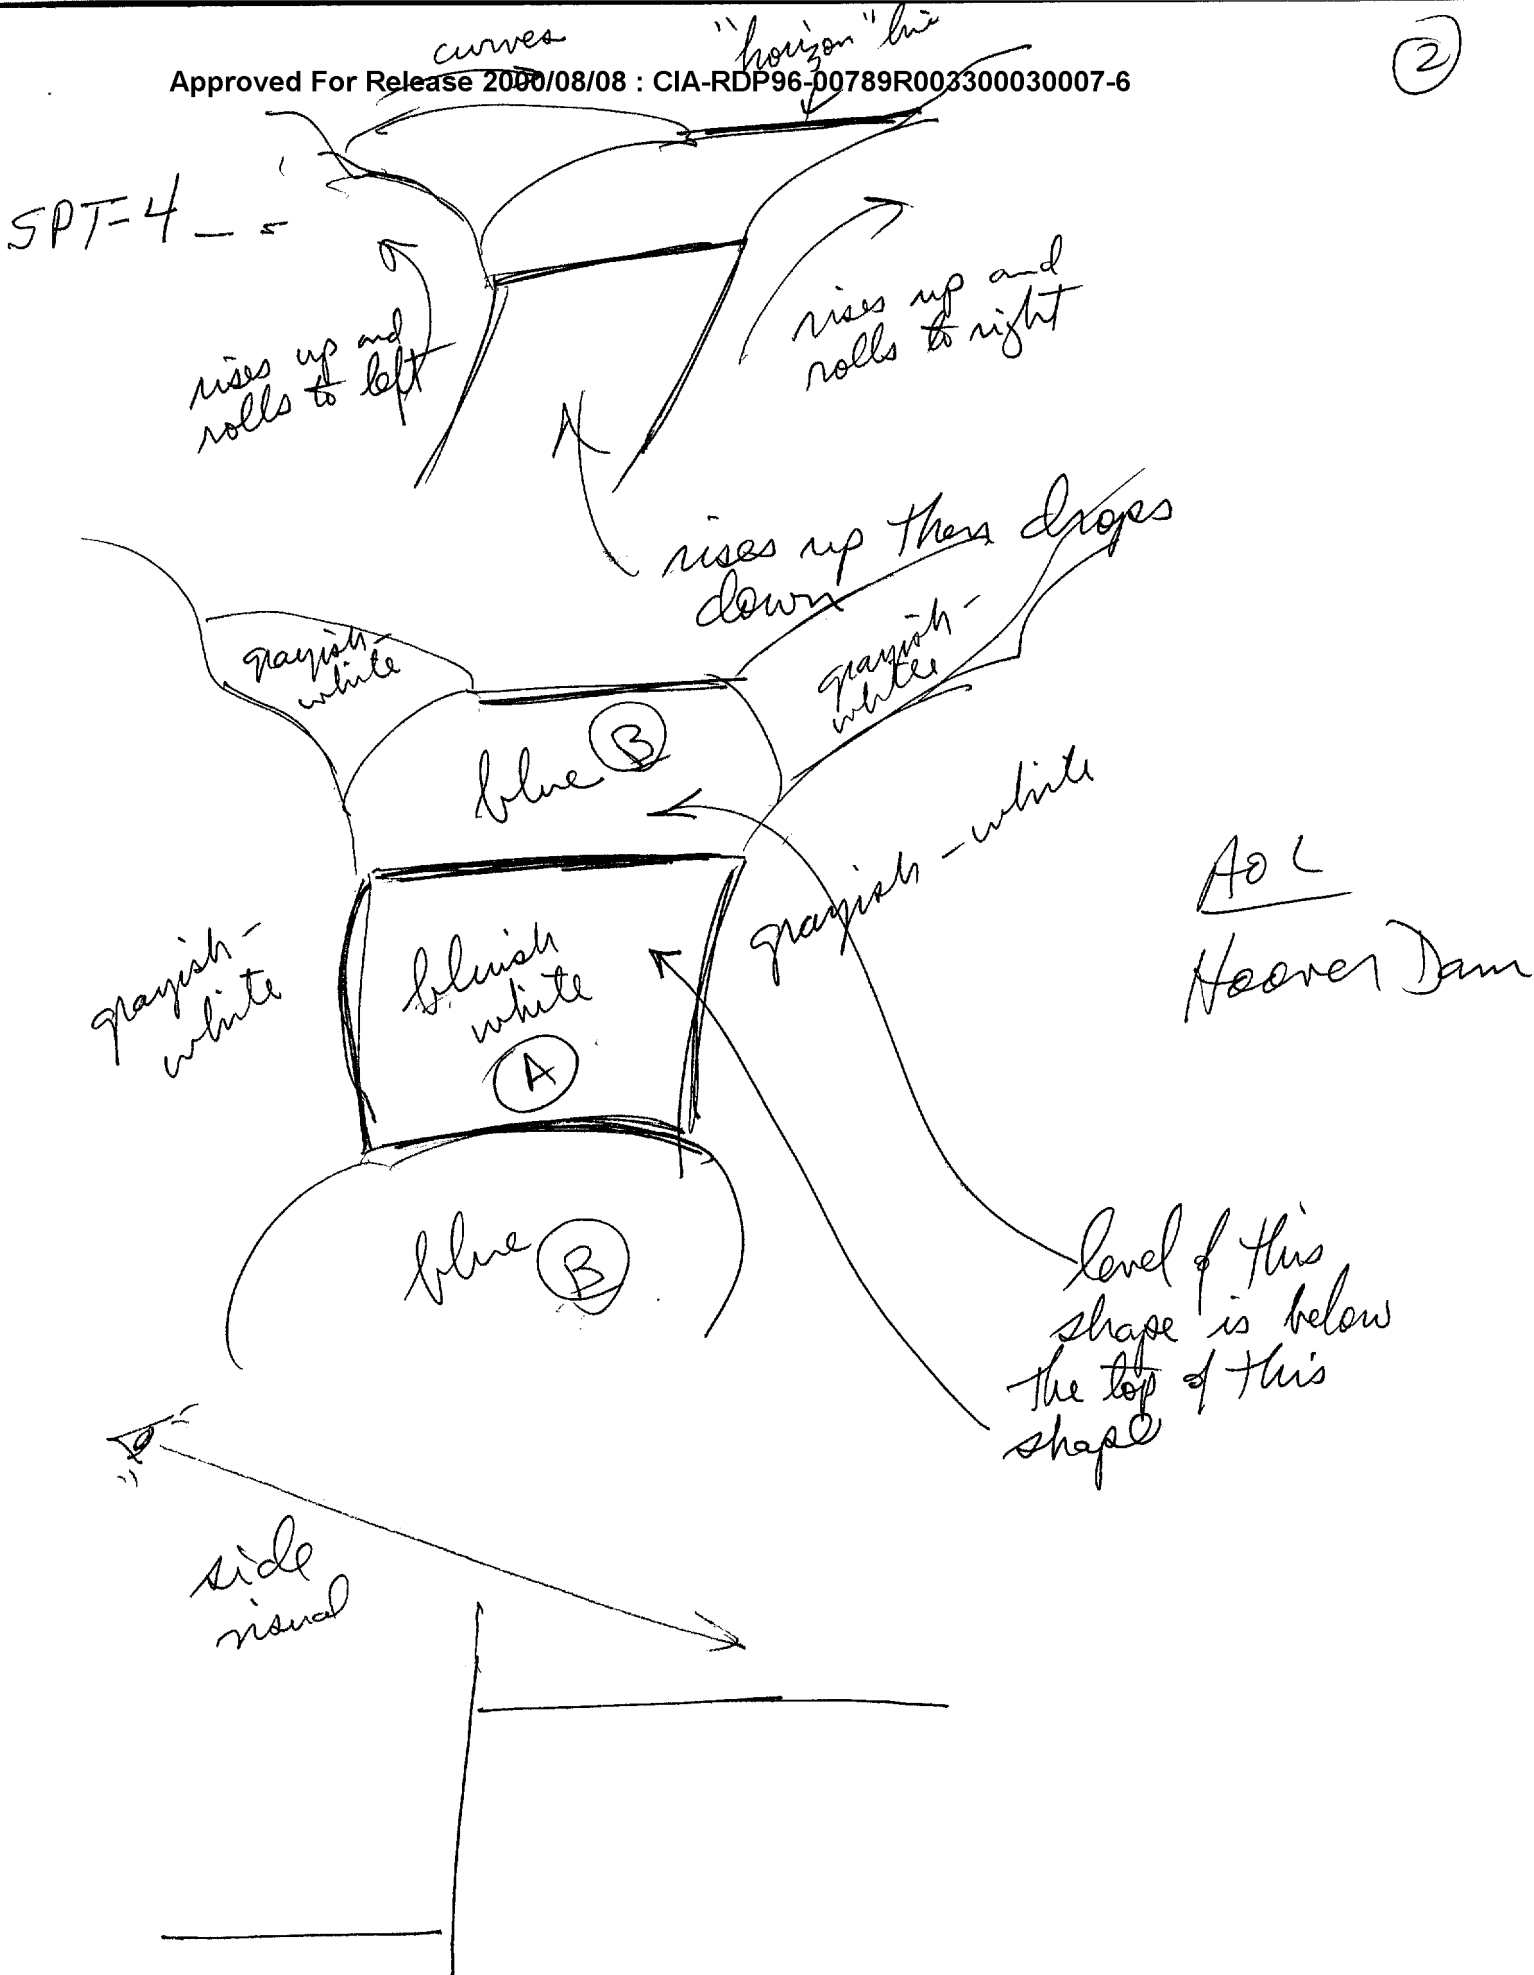 curves
"horizon" line
2
Approved For Release 2000/08/08 : CIA-RDP96-00789R003300030007-6
SPT=4
rises up and
rolls to left
rises up and
rolls to right
rises up then drops
down
grayish-
white
grayish-
white
blue B
grayish-white
AOL
Hoover Dam
grayish-
white
bluish
white
A
blue B
level of this
shape is below
the top of this
shape
side
visual